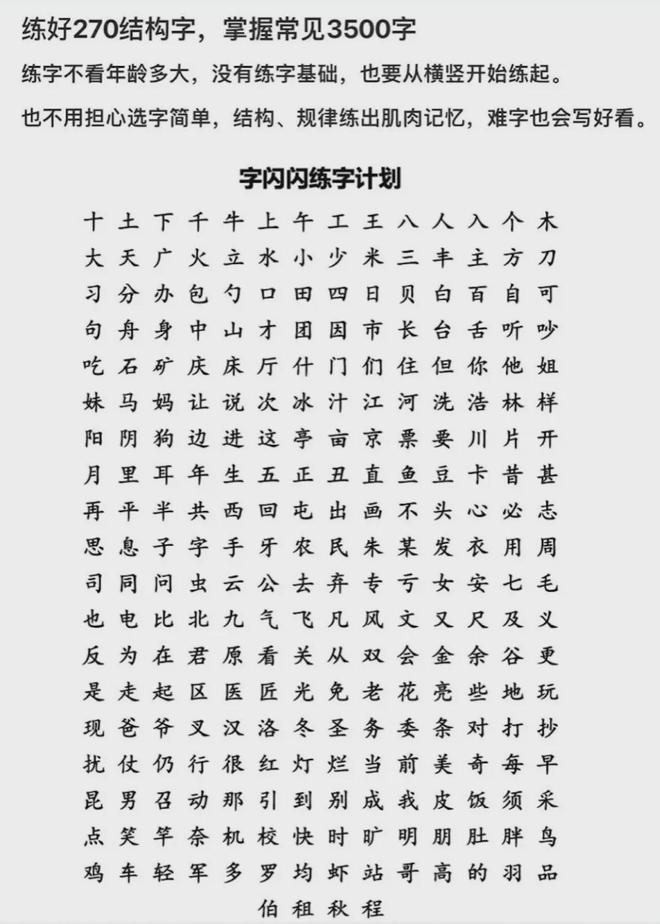 练好270结构字，掌握常见3500字
练字不看年龄多大，没有练字基础，也要从横竖开始练起。
也不用担心选字简单，结构、规律练出肌肉记忆，难字也会写好看。
字闪闪练字计划
十 土 下 千 牛 上 午 工 王 八 人 入 个 木
大 天 广 火 立 水 小 少 米 三 丰 主 方 刀
习 分 办 包 勺 口 田 四 日 贝 白 百 自 可
句 舟 身 中 山 才 团 因 市 长 台 舌 听 吵
吃 石 矿 庆 床 厅 什 门 们 住 但 你 他 姐
妹 马 妈 让 说 次 冰 汁 江 河 洗 浩 林 样
阳 阴 狗 边 进 这 亭 亩 京 票 要 川 片 开
月 里 耳 年 生 五 正 丑 直 鱼 豆 卡 昔 甚
再 平 半 共 西 回 屯 出 画 不 头 心 必 志
思 息 子 字 手 牙 农 民 朱 某 发 衣 用 周
司 同 问 虫 云 公 去 弃 专 亏 女 安 七 毛
也 电 比 北 九 气 飞 凡 风 文 又 尺 及 义
反 为 在 君 原 看 关 从 双 会 金 余 谷 更
是 走 起 区 医 匠 光 免 老 花 亮 些 地 玩
现 爸 爷 叉 汉 洛 冬 圣 务 委 条 对 打 抄
扰 仗 仍 行 很 红 灯 烂 当 前 美 奇 每 早
昆 男 召 动 那 引 到 别 成 我 皮 饭 须 采
点 笑 竿 奈 机 校 快 时 旷 明 朋 肚 胖 鸟
鸡 车 轻 军 多 罗 均 虾 站 哥 高 的 羽 品
伯 租 秋 程